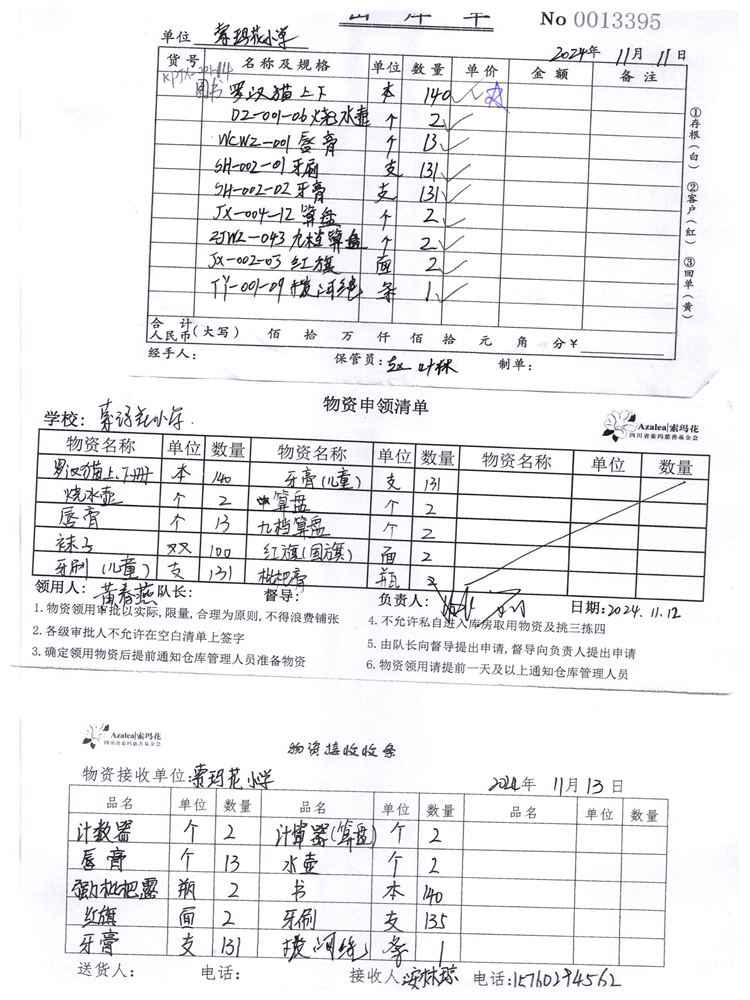 出库单 No 0013395
单位 索玛花小学 2024年11月11日
货号 名称及规格 单位 数量 单价 金额 备注
图书 罗汉猫上下 本 140
DZ-001-06 烧水壶 个 2
WCWZ-001 唇膏 个 13
SH-002-01 牙刷 支 131
SH-002-02 牙膏 支 131
JX-004-12 算盘 个 2
ZJWZ-043 九档算盘 个 2
JX-002-03 红旗 面 2
TY-001-09 拔河绳 条 1
合计人民币(大写) 佰 拾 万 仟 佰 拾 元 角 分 ¥
经手人: 保管员: 制单:
①存根(白) ②客户(红) ③回单(黄)
物资申领清单
Azalea|索玛花
四川省索玛慈善基金会
学校: 索玛花小学
物资名称 单位 数量 物资名称 单位 数量 物资名称 单位 数量
罗汉猫上、下册 本 140 牙膏(儿童) 支 131
烧水壶 个 2 算盘 个 2
唇膏 个 13 九档算盘 个 2
袜子 双 100 红旗(国旗) 面 2
牙刷(儿童) 支 131 枇杷膏 瓶
领用人: 黄春燕 队长: 督导: 负责人: 日期: 2024.11.12
1.物资领用审批以实际,限量,合理为原则,不得浪费铺张
2.各级审批人不允许在空白清单上签字
3.确定领用物资后提前通知仓库管理人员准备物资
4.不允许私自进入库房取用物资及挑三拣四
5.由队长向督导提出申请,督导向负责人提出申请
6.物资领用请提前一天及以上通知仓库管理人员
Azalea|索玛花
四川省索玛慈善基金会
物资接收收条
物资接收单位: 索玛花小学 2024年11月13日
品名 单位 数量 品名 单位 数量 品名 单位 数量
计数器 个 2 计算器(算盘) 个 2
唇膏 个 13 水壶 个 2
强力枇杷露 瓶 2 书 本 140
红旗 面 2 牙刷 支 135
牙膏 支 131 拔河绳 条 1
送货人: 电话: 接收人: 电话: 15760294562